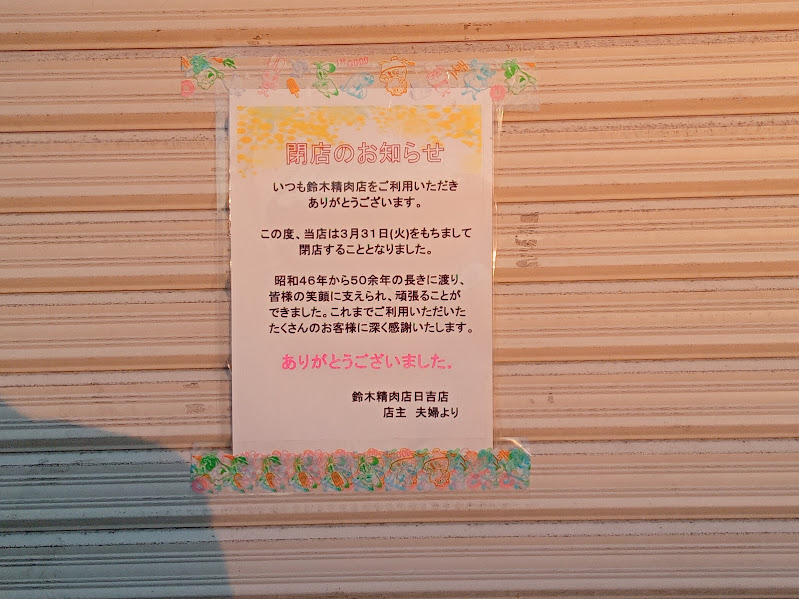 閉店のお知らせ
いつも鈴木精肉店をご利用いただき
ありがとうございます。
この度、当店は3月31日(火)をもちまして
閉店することとなりました。
昭和46年から50余年の長きに渡り、
皆様の笑顔に支えられ、頑張ることが
できました。これまでご利用いただいた
たくさんのお客様に深く感謝いたします。
ありがとうございました。
鈴木精肉店日吉店
店主 夫婦より